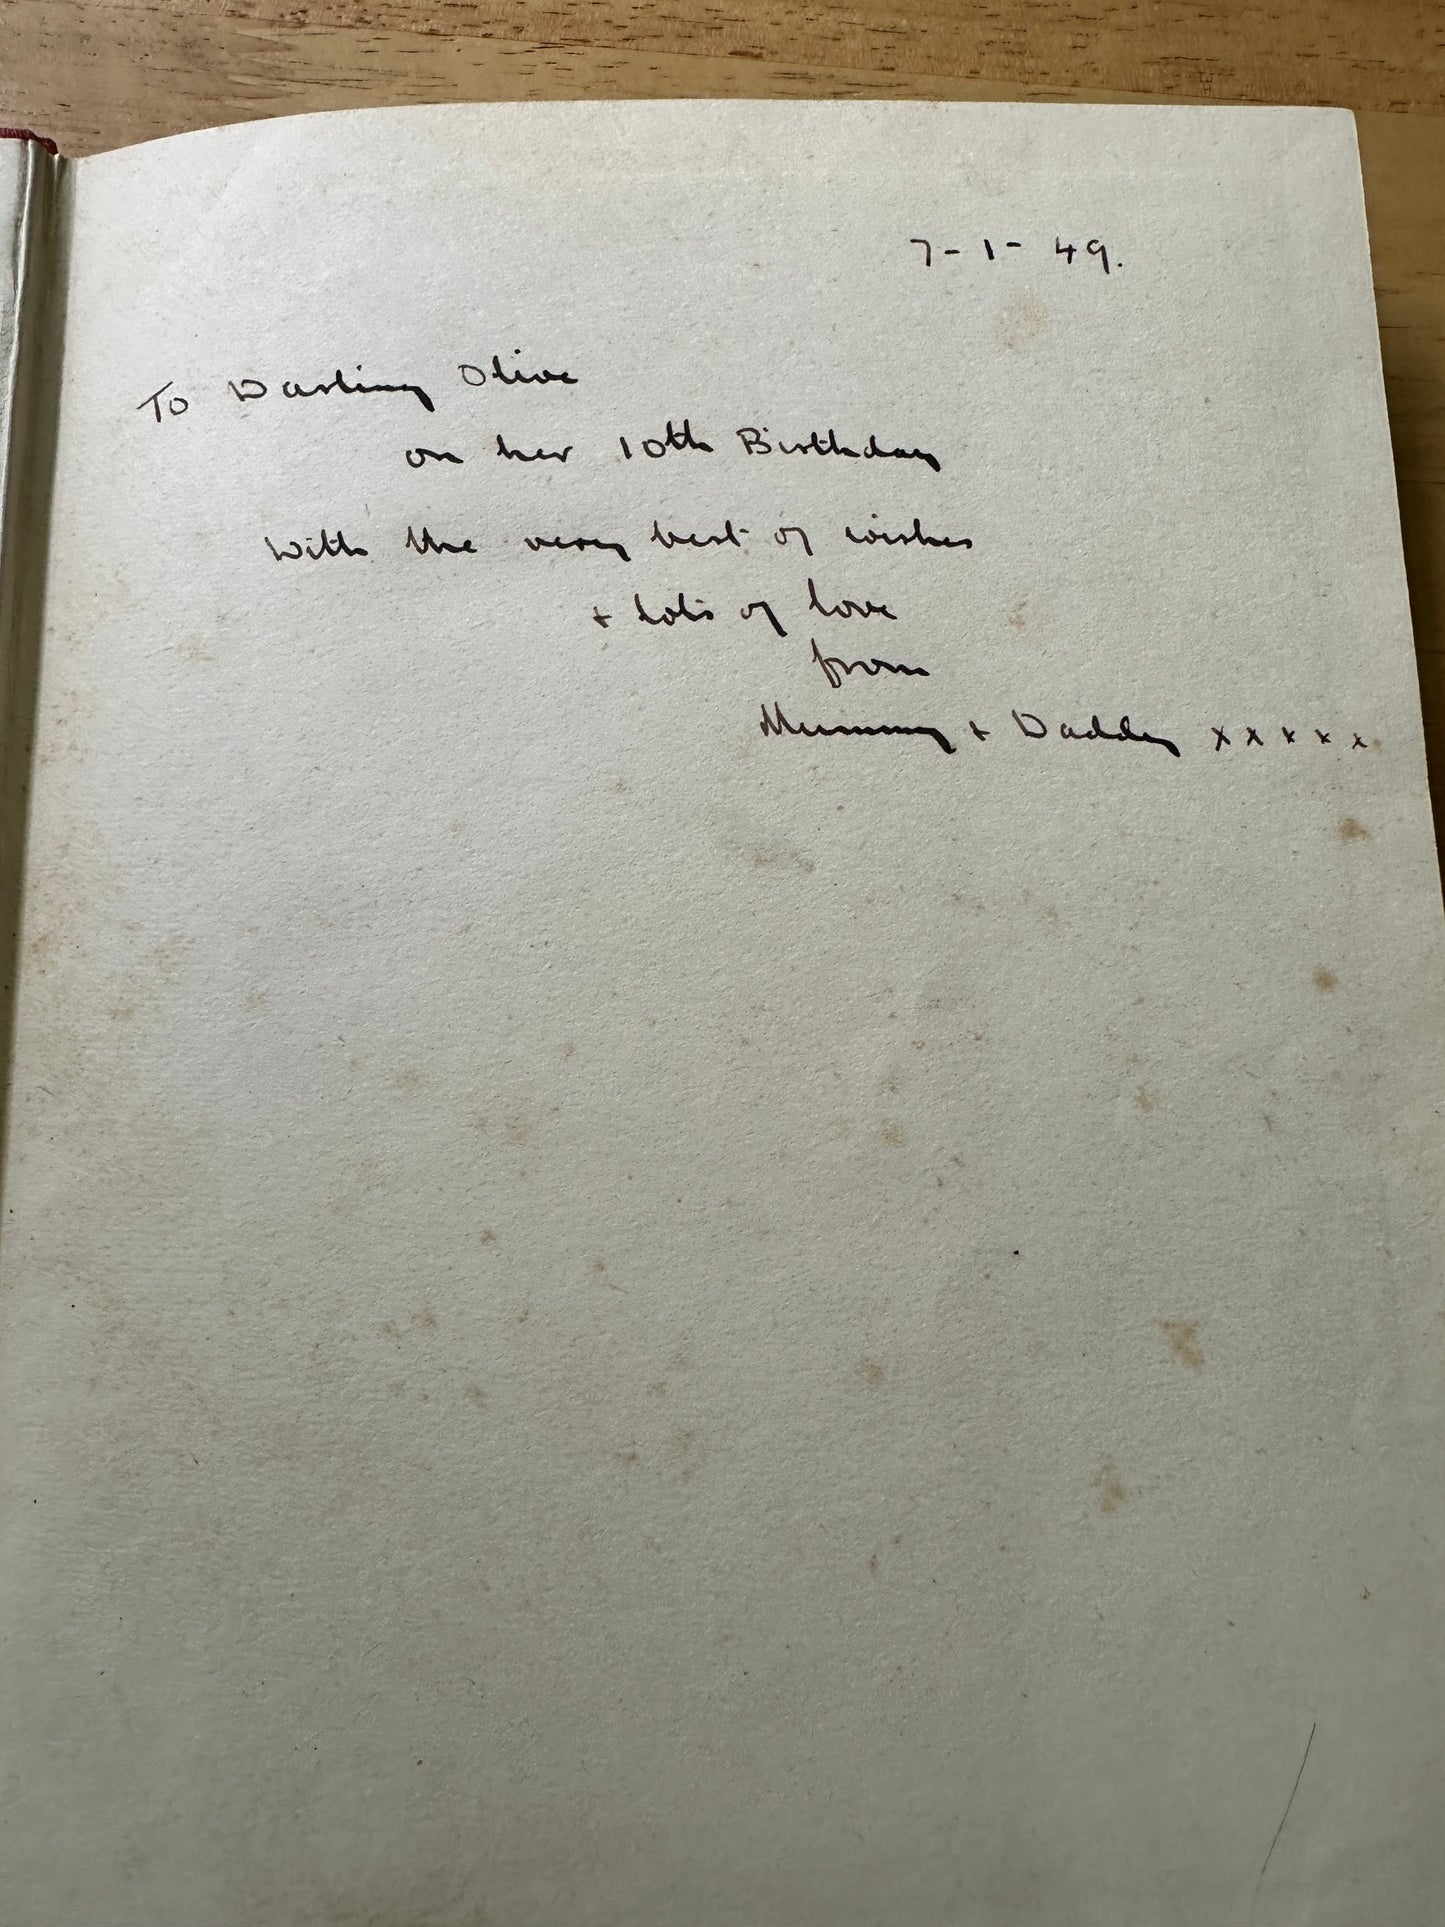 7-1-49.
To Darling Olive
on her 10th Birthday
With the very best of wishes
+ lots of love
from
Mummy + Daddy xxxxx